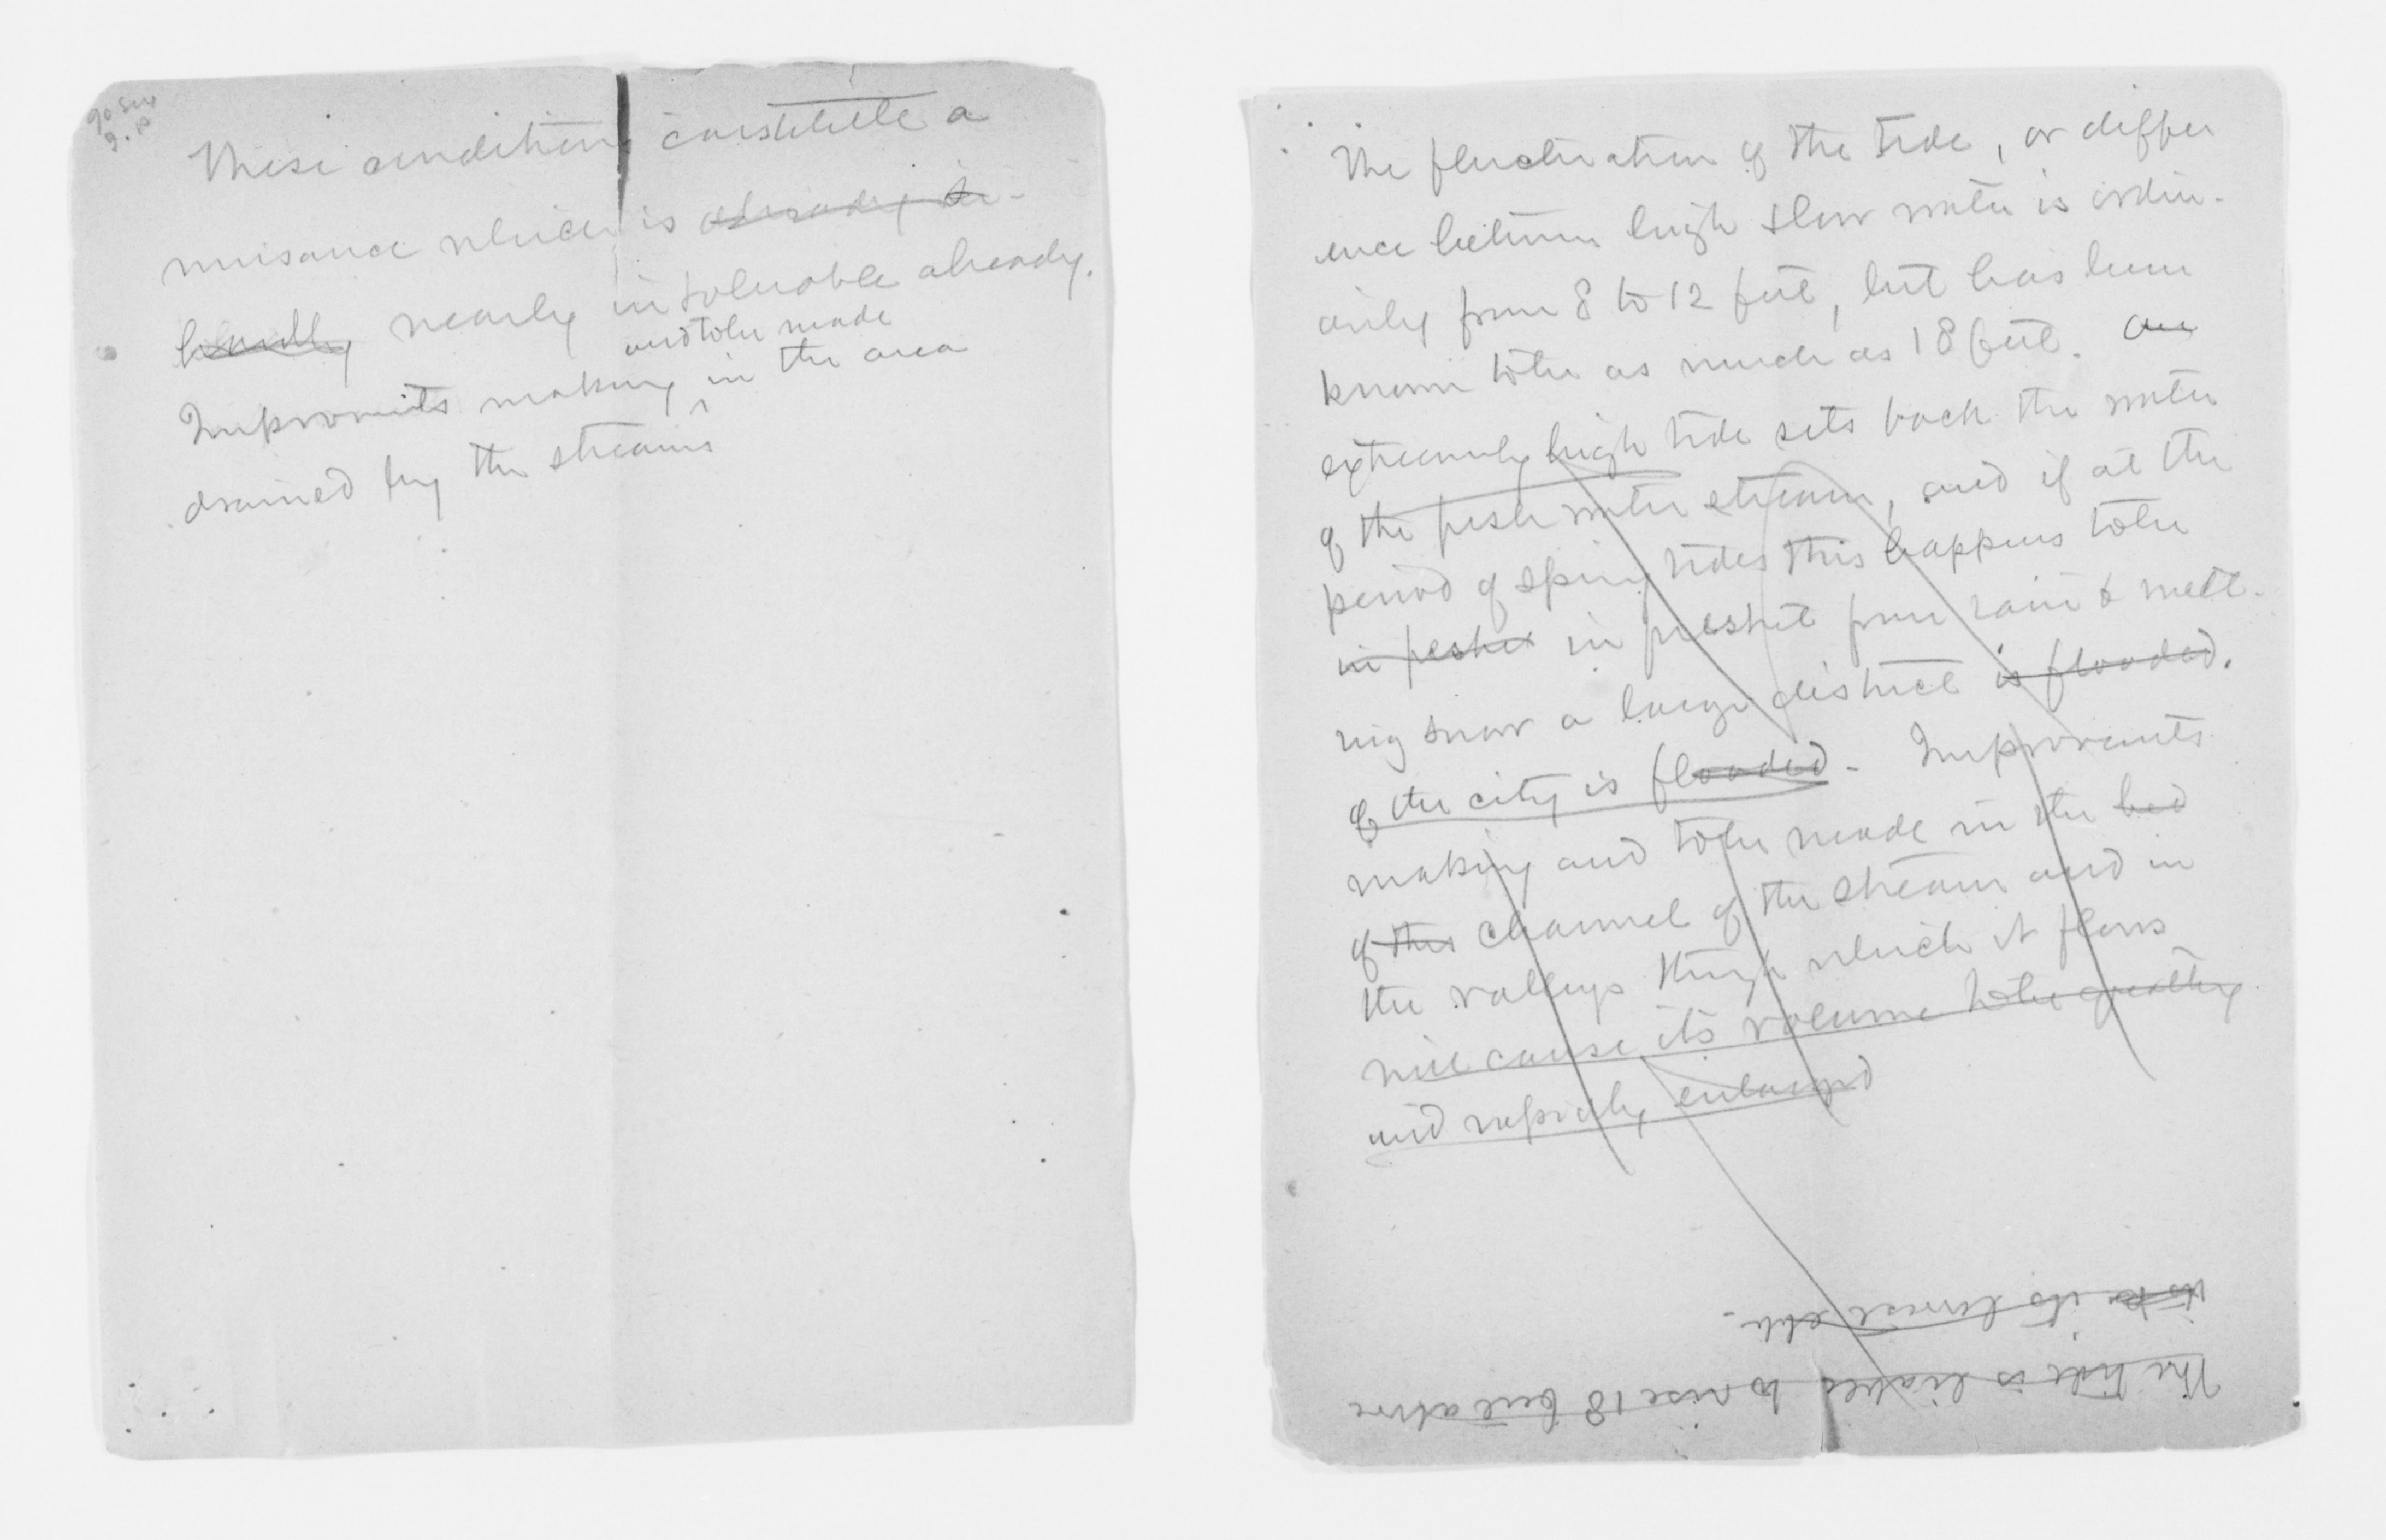 These conditions constitute a
nuisance which is already in-
nearly intolerable already.
and to be made
Improvmts making in the area
drained by the streams
The fluctuation of the tide, or differ
ence between high & low water is ordin-
arily from 8 to 12 feet, but has been
known to be as much as 18 feet. An
extremely high tide sets back the water
of the fresh water stream, and if at the
period of spring tides this happens to be
in freshet in freshet from rain & melt-
ing snow a large district is flooded.
of the city is flooded. Improvmts
making and to be made in the bed
of the channel of the stream and in
the valleys through which it flows
will cause its volume to be greatly
and rapidly enlarged
The tide is liable to rise 18 feet above
its lowest ebb.